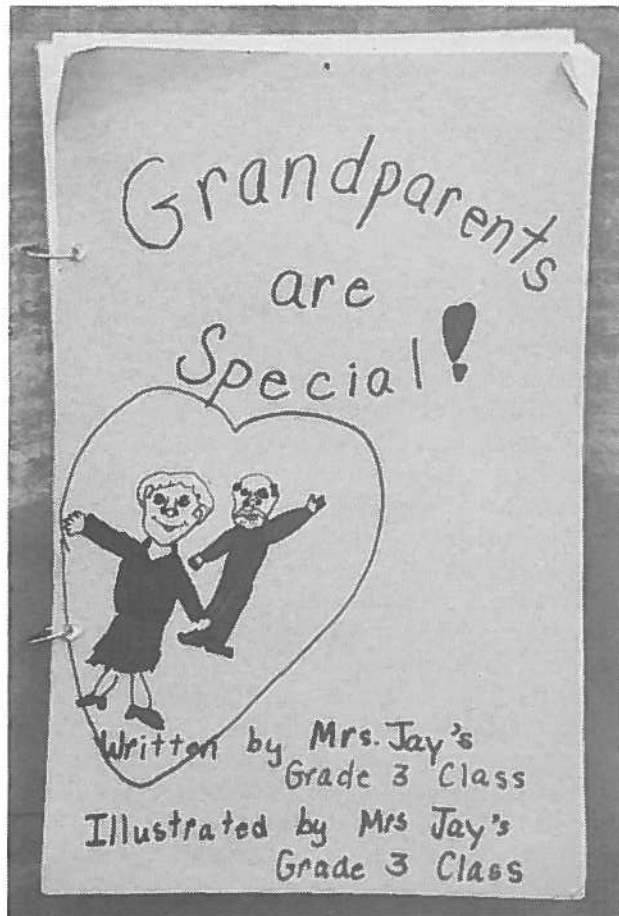 Grandparents
are
Special!
Written by Mrs. Jay's
Grade 3 Class
Illustrated by Mrs Jay's
Grade 3 Class